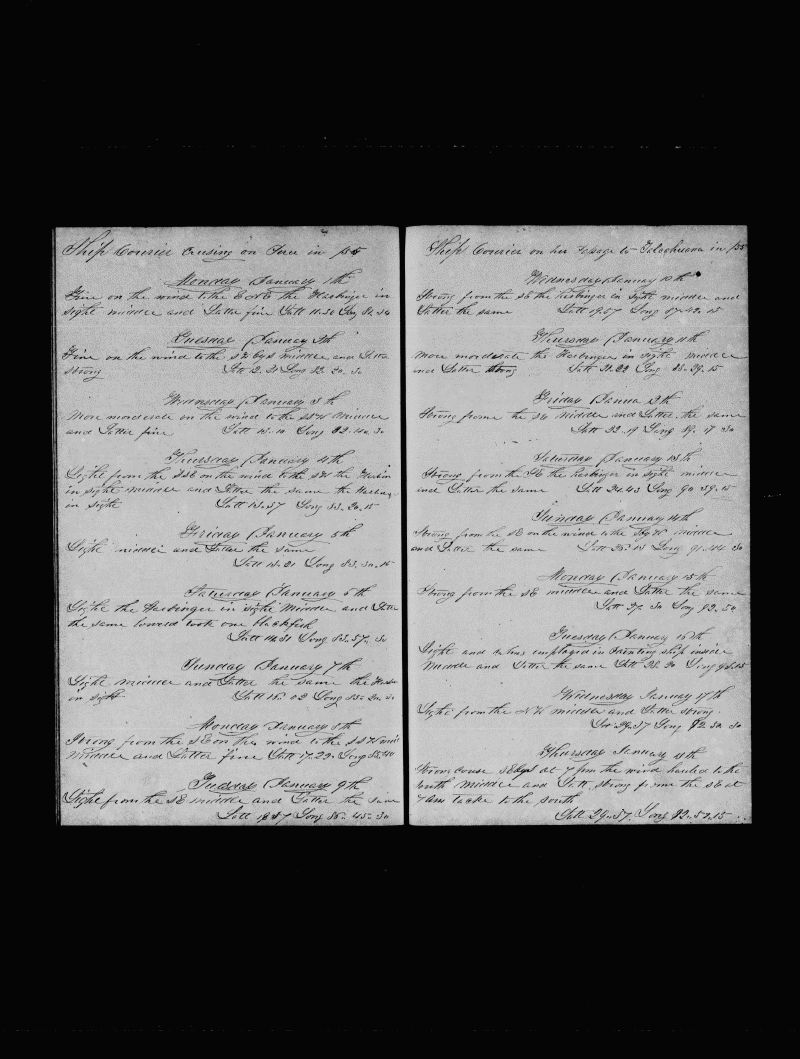 Ship Courier Crusing on Peru in 1855
Monday January 1th
Fine on the wind to the E the Harbinger in
sight middle and Latter fine Latt 11.50 Long 81.34
Tuesday January 2th
Fine on the wind to the SW middle and Latter
strong Latt 12.21 Long 82.20.30
Wednesday January 3th
More morderate on the wind to the SSW Middle
and Latter fine Latt 13.10 Long 82.40.30
Thursday January 4th
Light from the SSE on the wind to the SW the
in sight middle and Latter the same the
in sight Latt 13.57 Long 83.20.15
Friday January 5th
Light middle and Latter the same
Latt 14.21 Long 83.30.15
Saturday January 6th
Light the Harbinger in sight Middle and Latter
the same lowerd took one blackfish
Latt 14.31 Long 83.57.30
Sunday January 7th
Light middle and Latter the same the
in sight Latt 15.02 Long 85.20.30
Monday January 8th
Strong from the SE on the wind to the SSW
Middle and Latter fine Latt 17.29 Long 85.40
Tuesday January 9th
Light from the SE middle and Latter the same
Latt 18.57 Long 86.45.30
Ship Courier on her Pasage to in 1855
Wednesday January 10th
Strong from the SE the harbinger in sight middle and
Latter the same Latt 19.57 Long 87.42.15
Thursday January 11th
more morderate the Harbinger in sight middle
and Latter strong Latt 21.22 Long 88.39.15
Friday Janua 12th
Strong frome the SE Middle and Latter the same
Latt 22.19 Long 89.17.30
Saturday January 13th
Strong from the SE the harbinger in sight middle
and Latter the same Latt 24.43 Long 90.39.15
Sunday January 14th
Strong from the SE on the wind to the middle
and Latter the same Latt 25.13 Long 91.44.30
Monday January 15th
Strong from the SE middle and Latter the same
Latt 27.30 Long 92.50
Tuesday January 16th
Light and employed in Painting ship inside
Middle and Latter the same Latt 28.20 Long
Wednesday January 17th
Light from the NW middle and Latter strong
Long 92.30.30
Thursday January 18th
Strong at 7 pm the wind hauled to the
South Middle and Latt strong frome the SE at
7 Am tacke to the south
Latt 29.57 Long 92.52.15